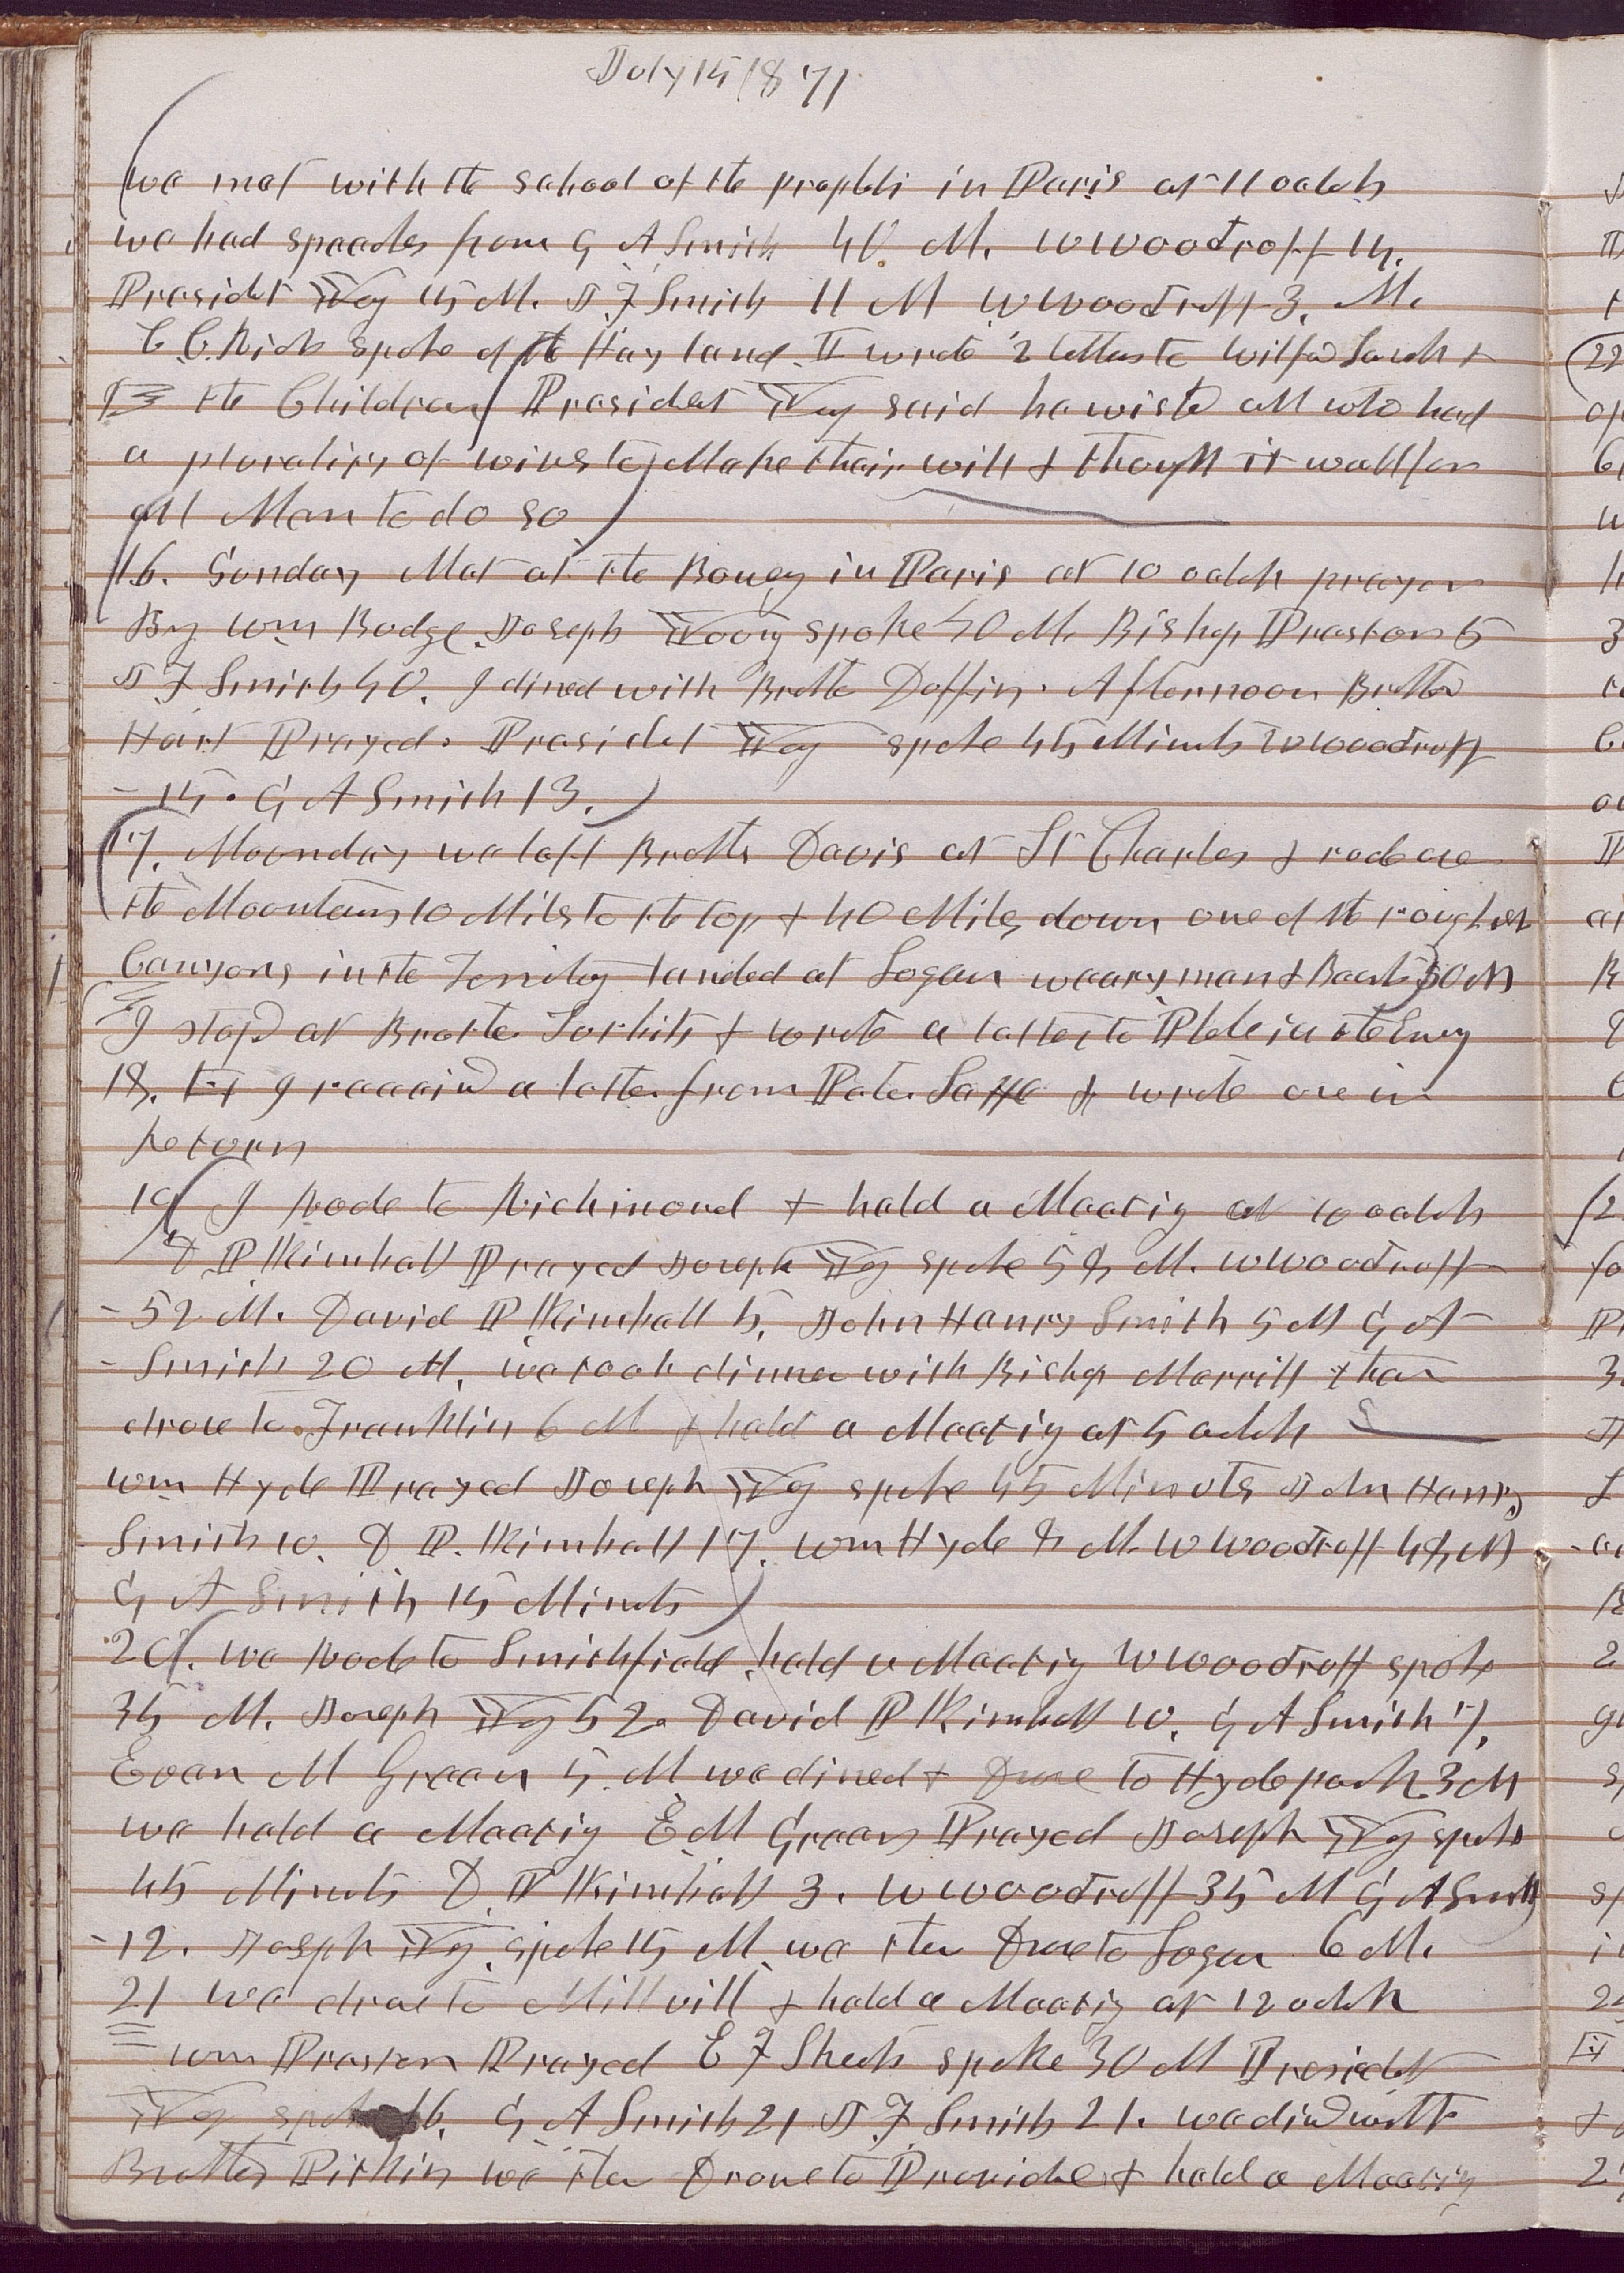 July 15 1871
we met with the school of the prophets in Paris at 11 oclok
we had speeches from G A Smith 40 M. W Woodruff 14.
Presidet Yg 15 M. J F Smith 11 M W Woodruff 3. M.
C C Rich spoke of the Hay land. I wrote 2 letters to Wilford Sarah &
the Children President Yug said he wished all who had
a plurality of wives to Make their will & thought it well for
all Men to do so
16. Sunday Met at the Bowey in Paris at 10 oclok prayer
By Wm Budge. Joseph Young spoke 50 M. Bishop Preston 5
J F Smith 40. I dined with Brother Duffin. Afternoon Brother
Hart Prayed. Presidet Yug spoke 45 Minuts W Woodruff
- 15. G A Smith 13.
17. Moonday we left Brother Davis at St Charles & rode over
the Mountains 10 Miles to the top & 40 Miles down one of the roughest
Canyons in the Territoy landed at Logan weary man & Beast 50 M
I stoped at Brother & wrote a letter to Phebe in the Eving
18. I receeived a letter from & wrote one in
return
19 I Rode to Richmond & held a Meetig at 10 oclok
D P Kimball Prayed Joseph Yg spoke 58 M. W Woodruff
- 52 M. David P Kimball 5. John Henry Smith 5 M G A
- Smith 20 M. we took dinner with Bishop Merrill & then
drove to Franklin 6 M & held a Meetig at 5 oclok
Wm Hyde Prayed Joseph Yg spoke 45 Minuts John Henry
Smith 10. D P. Kimball 17. Wm Hyde 8 M. W Woodruff 48 M
G A Smith 15 Minuts
20. We Rode to Smithfield held a Meetig W Woodruff spoke
35 M. Joseph Yg 52. David P Kimball 10. G A Smith 7.
Evan M Green 5. M we dined & Drove to Hyde park 3 M
we held a Meetig E M Green Prayed Joseph Yg spoke
45 Minuts D. P Kimball 3. W Woodruff 35 M G A Smith
- 12. Joseph Yg. spoke 15 M we then Drove to Logan 6 M.
21 We drove to Millvill & held a Meetig at 12 oclok
Wm Preston Prayed E F Sheets spoke 30 M Presidet
Yug spoke 16. G A Smith 21 J F Smith 21. we dined with
Brother Pitkin we then Drove to Providee & held a Meetig